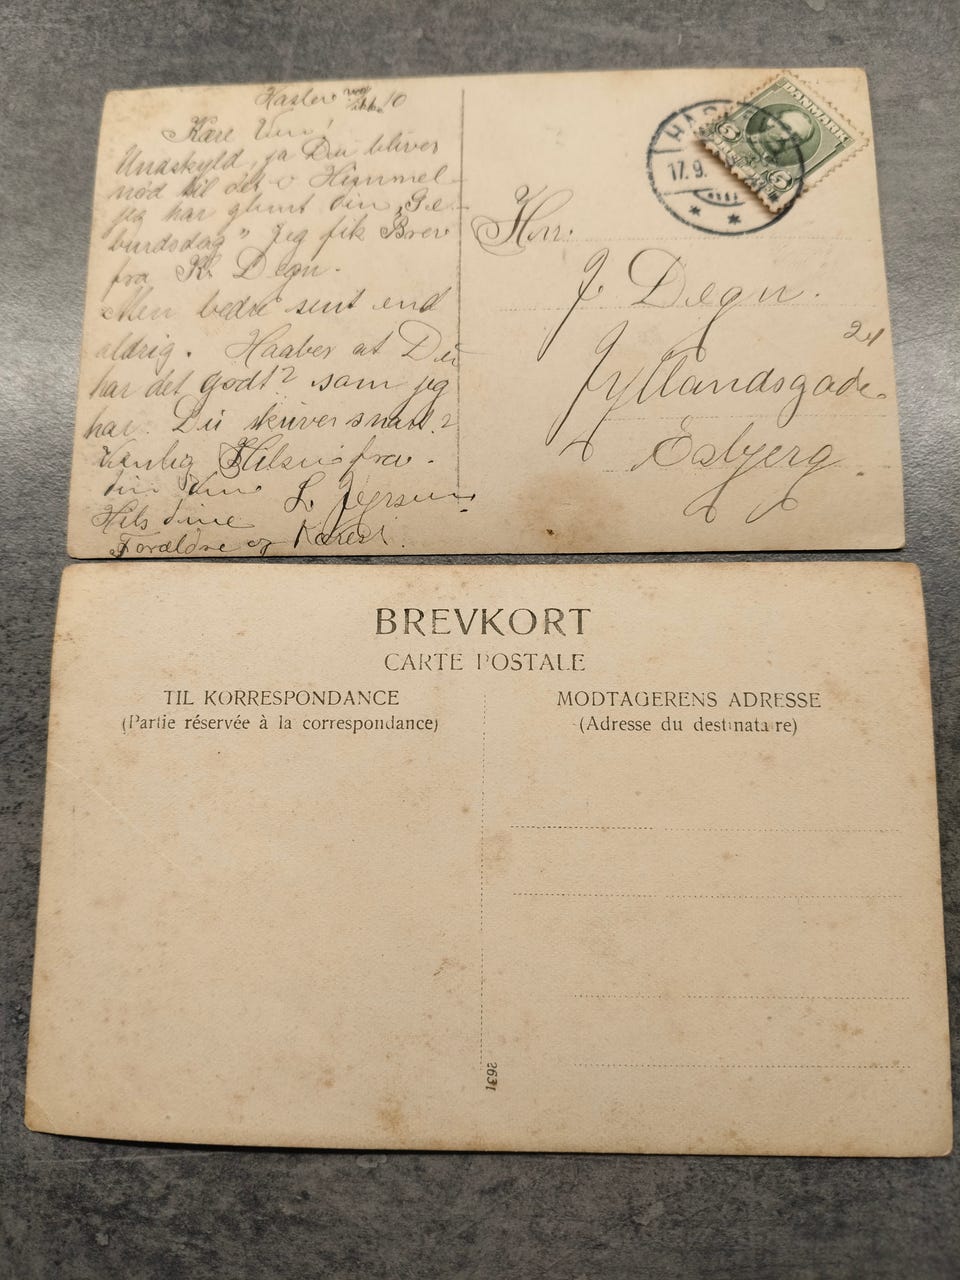 Kære Ven!
Undskyld, ja Du bliver
nød til det o Himmel
jeg har glemt din „Ge-
burdsdag" Jeg fik Brev
fra K. Degn.
Men bedre sent end
aldrig. Haaber at Du
har det godt? som jeg
har. Du skriver snart?
Venlig Hilsen fra
din Ven L.
Hils dine
Forældre og
DANMARK
5 5
17.9.
Herr.
J. Degn.
Jyllandsgade
Esbjerg.
BREVKORT
CARTE POSTALE
TIL KORRESPONDANCE
(Partie réservée à la correspondance)
MODTAGERENS ADRESSE
(Adresse du destinataire)
2631